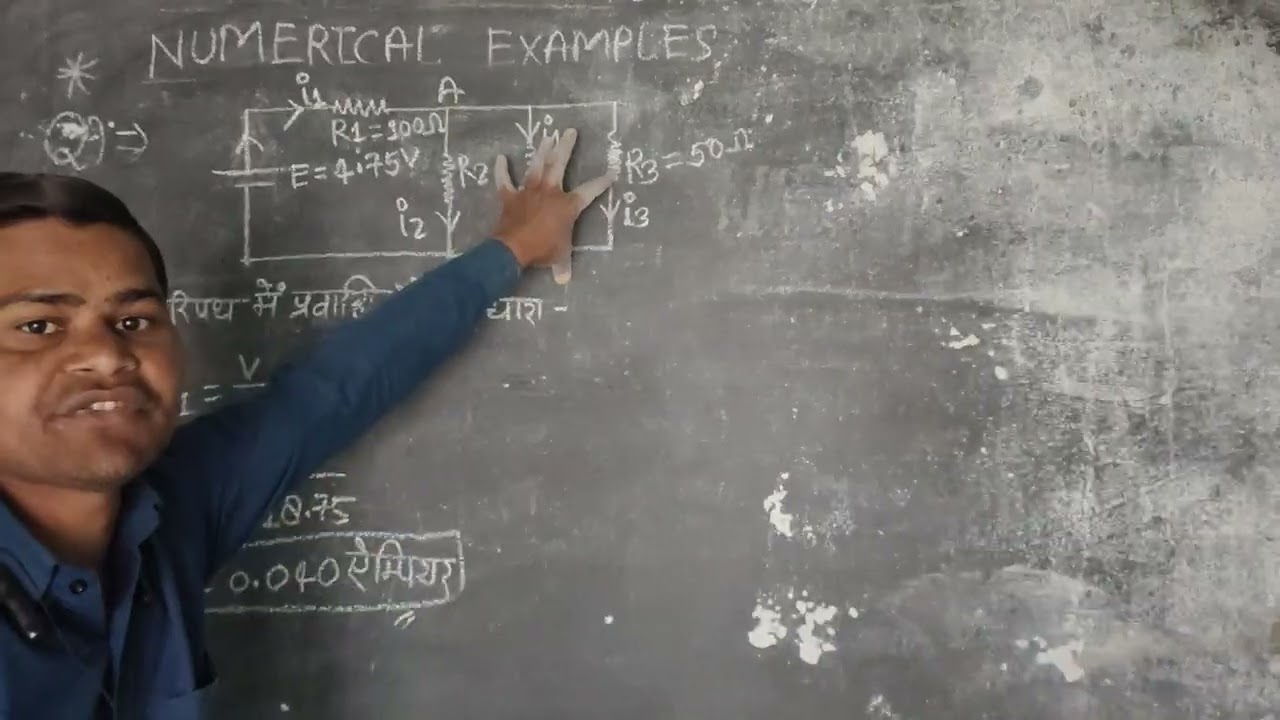 NUMERICAL EXAMPLES
i1 A
R1=100Ω
E=4.75V R2 R3=50Ω
i2 i3
रिपथ में धारा-
V
=
18.75
0.040 ऐम्पियर